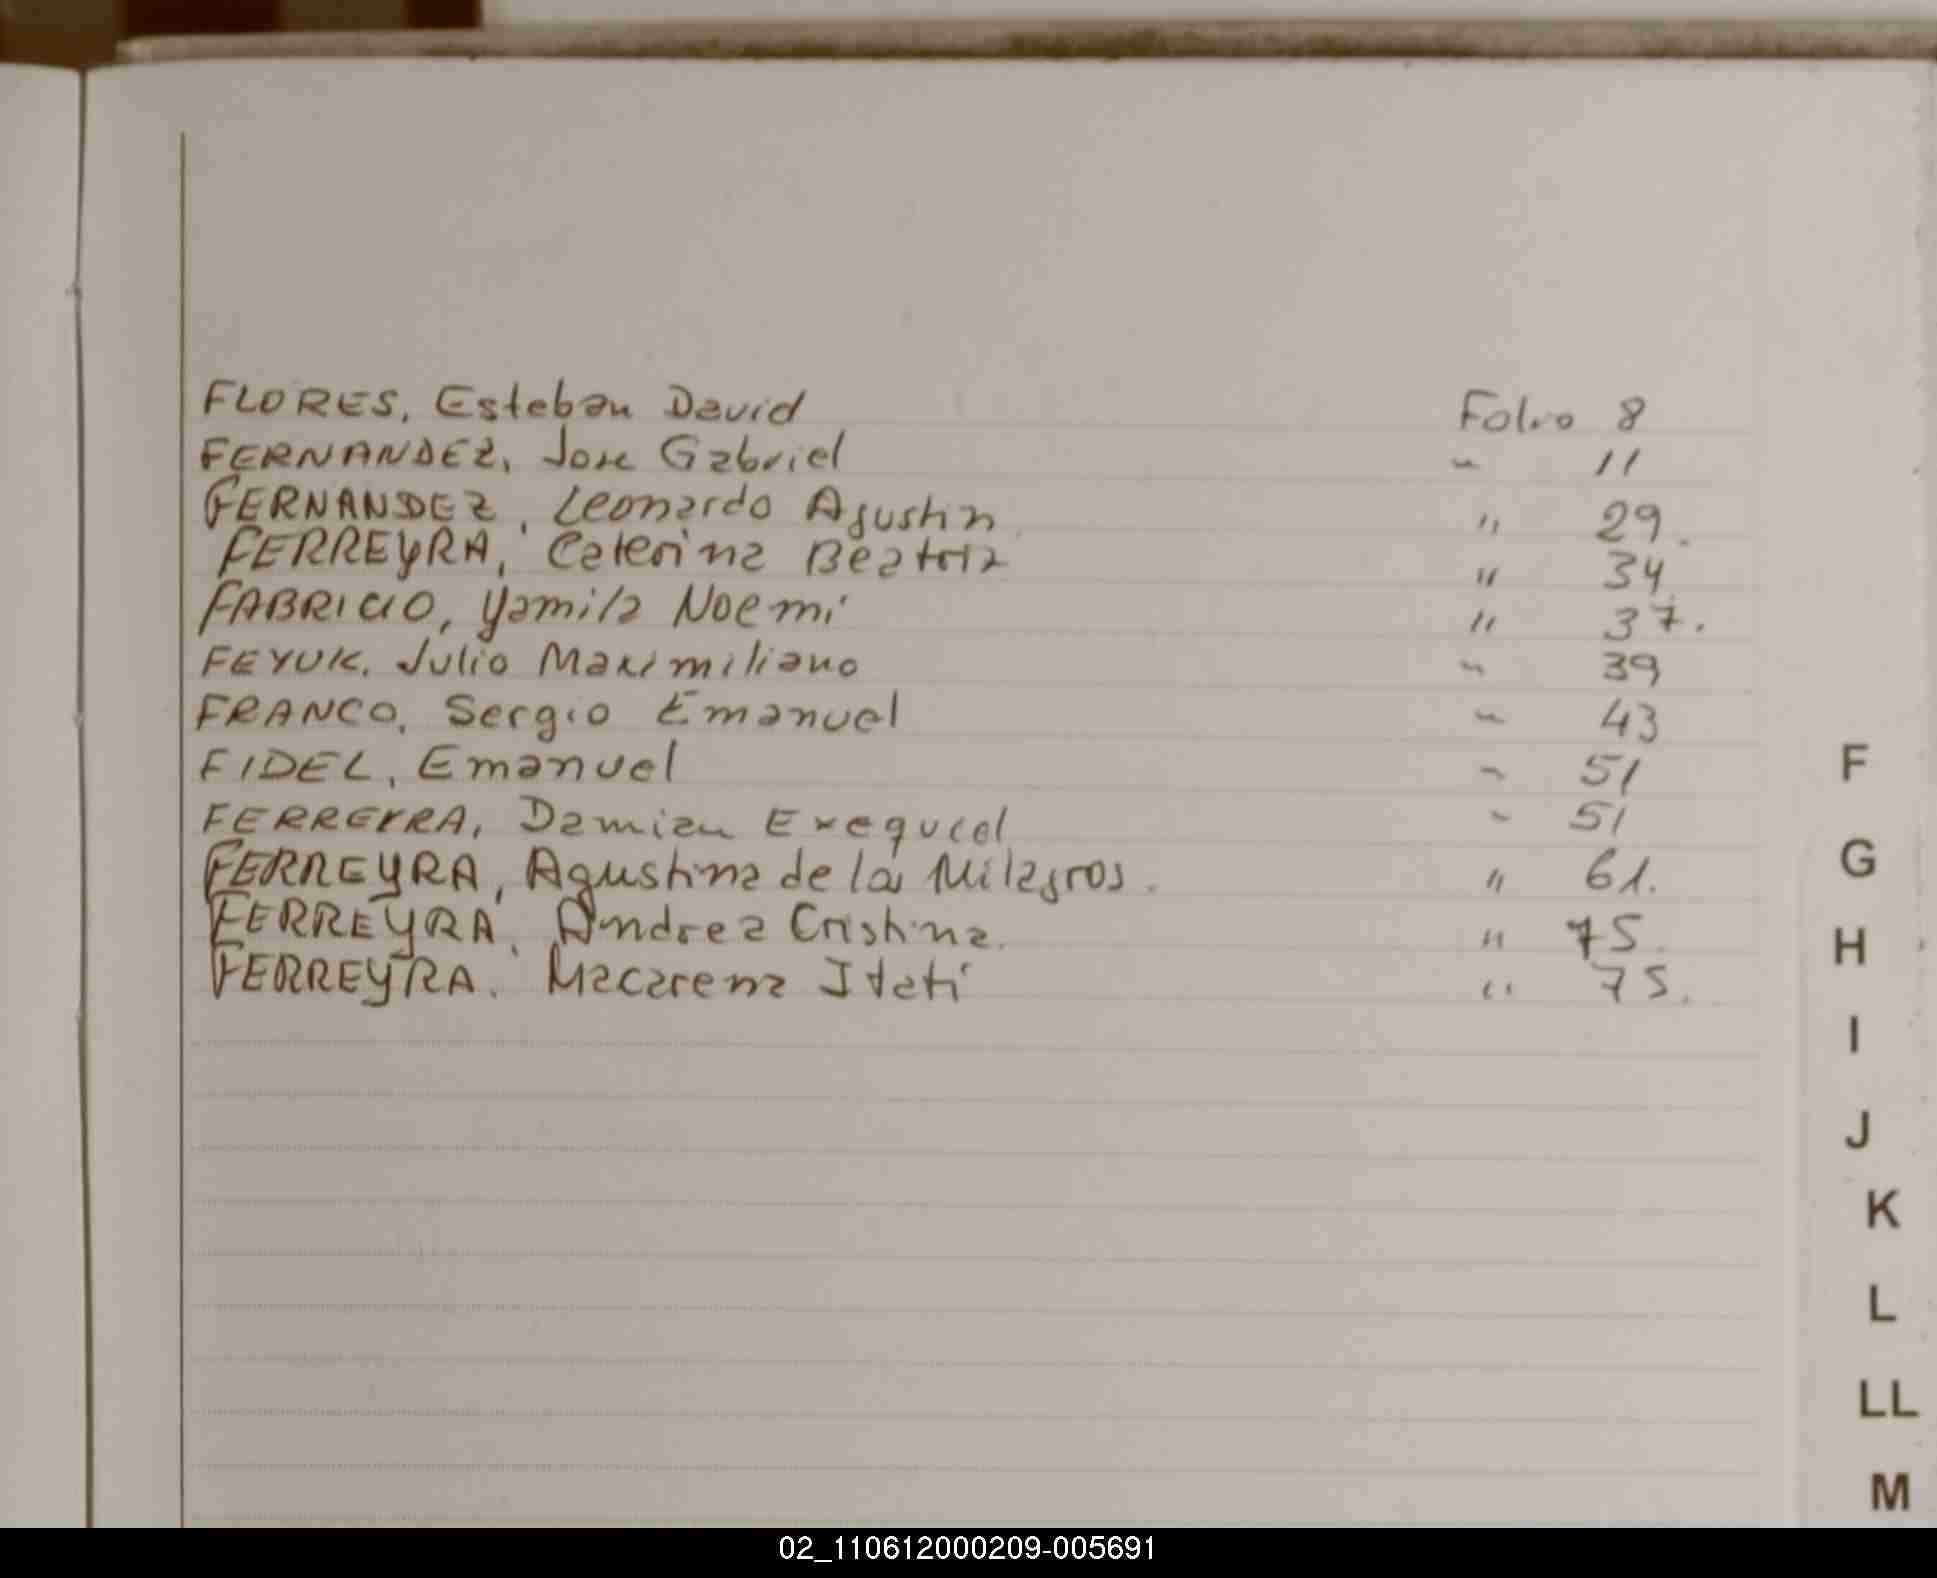 FLORES, Esteban David Folio 8
FERNANDEZ, Jose Gabriel " 11
FERNANDEZ, Leonardo Agustin " 29.
FERREYRA, Caterina Beatriz " 34
FABRICIO, Yamila Noemi " 37.
FEYUK. Julio Maximiliano " 39
FRANCO, Sergio Emanuel " 43
FIDEL, Emanuel " 51
FERREYRA, Damian Exequiel " 51
FERREYRA, Agustina de los Milagros. " 61.
FERREYRA, Andrea Cristina. " 75.
FERREYRA. Macarena Itatí " 75.
F
G
H
I
J
K
L
LL
M
02_110612000209-005691